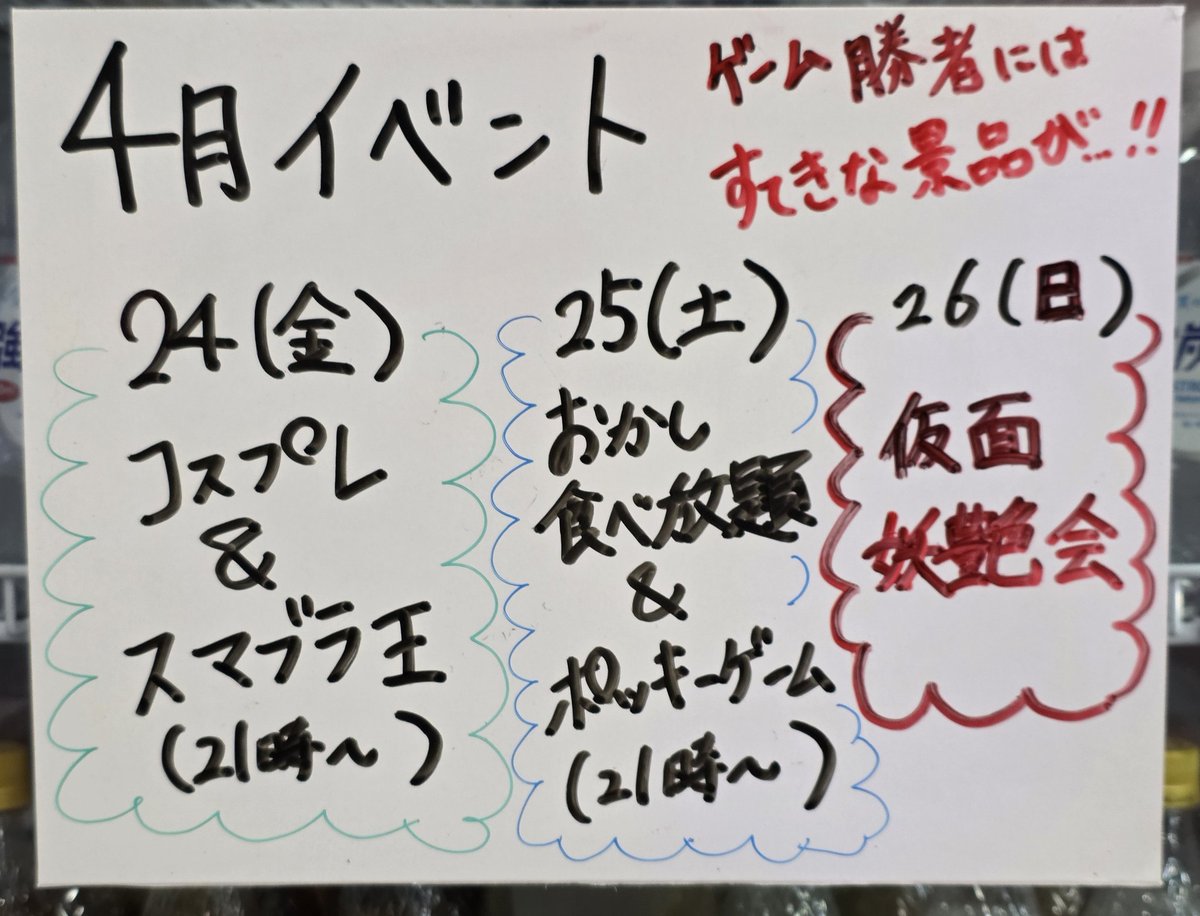 4月イベント
ゲーム勝者には
すてきな景品が…!!
24(金)
コスプレ
&
スマブラ王
(21時～)
25(土)
おかし
食べ放題
&
ポッキーゲーム
(21時～)
26(日)
仮面
妖艶会